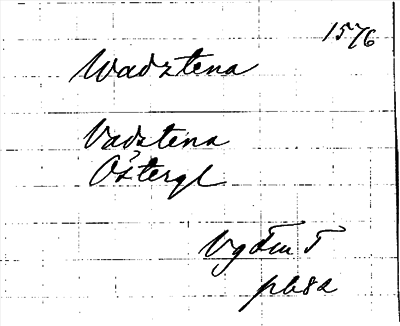 1576
Wadztena
Vadstena
Östergl
Vg Fm I